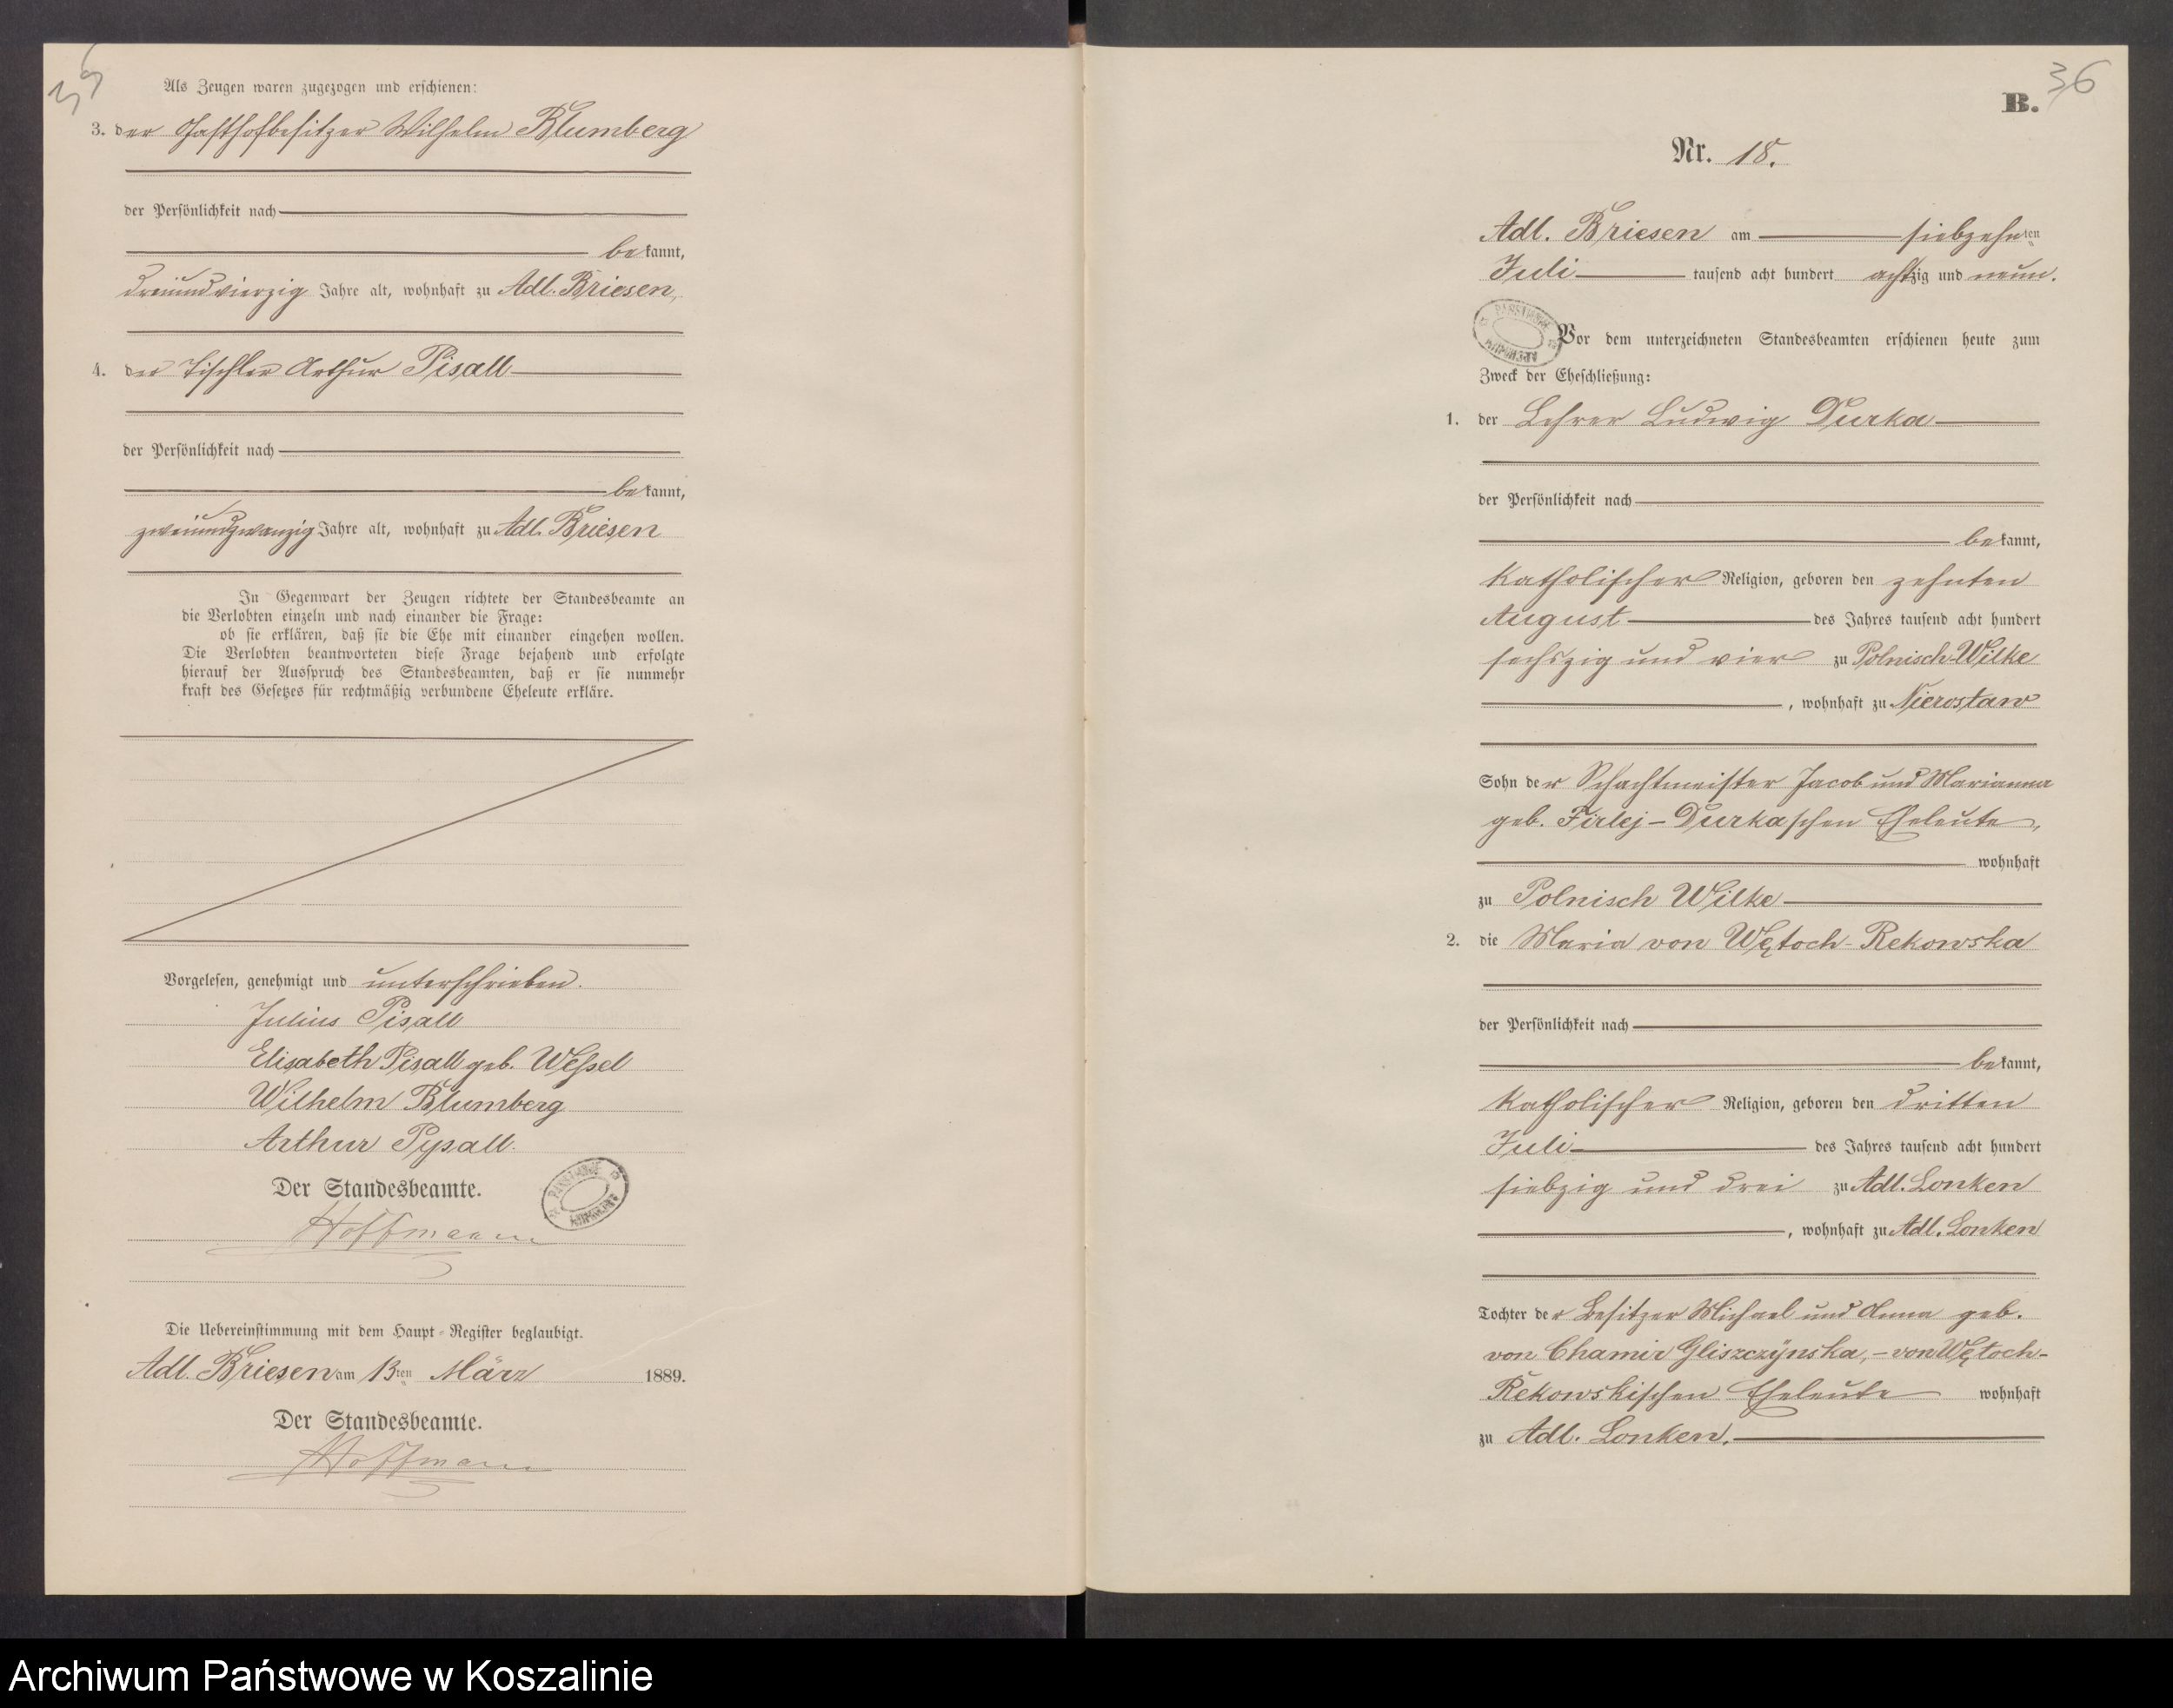 35
Als Zeugen waren zugezogen und erschienen:
3. der Gasthofbesitzer Wilhelm Blumberg
der Persönlichkeit nach
bekannt,
dreiundvierzig Jahre alt, wohnhaft zu Adl. Briesen,
4. der Tischler Arthur Pisall
der Persönlichkeit nach
bekannt,
zweiundzwanzig Jahre alt, wohnhaft zu Adl. Briesen
In Gegenwart der Zeugen richtete der Standesbeamte an
die Verlobten einzeln und nach einander die Frage:
ob sie erklären, daß sie die Ehe mit einander eingehen wollen.
Die Verlobten beantworteten diese Frage bejahend und erfolgte
hierauf der Ausspruch des Standesbeamten, daß er sie nunmehr
kraft des Gesetzes für rechtmäßig verbundene Eheleute erkläre.
Vorgelesen, genehmigt und unterschrieben.
Julius Pisall
Elisabeth Pisall geb. Wessel
Wilhelm Blumberg
Arthur Pysall.
Der Standesbeamte.
Hoffmann
Die Uebereinstimmung mit dem Haupt-Register beglaubigt.
Adl. Briesen am 13ten März 1889.
Der Standesbeamte.
Hoffmann
36
B.
Nr. 18.
Adl. Briesen am siebzehnten
Juli tausend acht hundert achtzig und neun.
Vor dem unterzeichneten Standesbeamten erschienen heute zum
Zweck der Eheschließung:
1. der Lehrer Ludwig Durka
der Persönlichkeit nach
bekannt,
katholischer Religion, geboren den zehnten
August des Jahres tausend acht hundert
sechszig und vier zu Polnisch Wilke
, wohnhaft zu Nierostaw
Sohn der Schachtmeister Jacob und Marianna
geb. Firlej-Durkaschen Eheleute,
wohnhaft
zu Polnisch Wilke
2. die Maria von Wętoch-Rekowska
der Persönlichkeit nach
bekannt,
katholischer Religion, geboren den dritten
Juli des Jahres tausend acht hundert
siebzig und drei zu Adl. Lonken
, wohnhaft zu Adl. Lonken
Tochter der Besitzer Michael und Anna geb.
von Chamir Gliszczynska,- von Wętoch-
Rekowskischen Eheleute wohnhaft
zu Adl. Lonken.
Archiwum Państwowe w Koszalinie